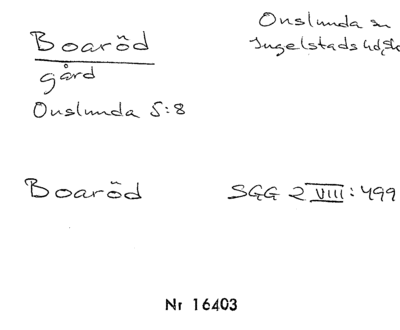 Boaröd
Onslunda sn
Ingelstads hd,
gård
Onslunda 5:8
Boaröd SGG 2 VIII: 499
Nr 16403